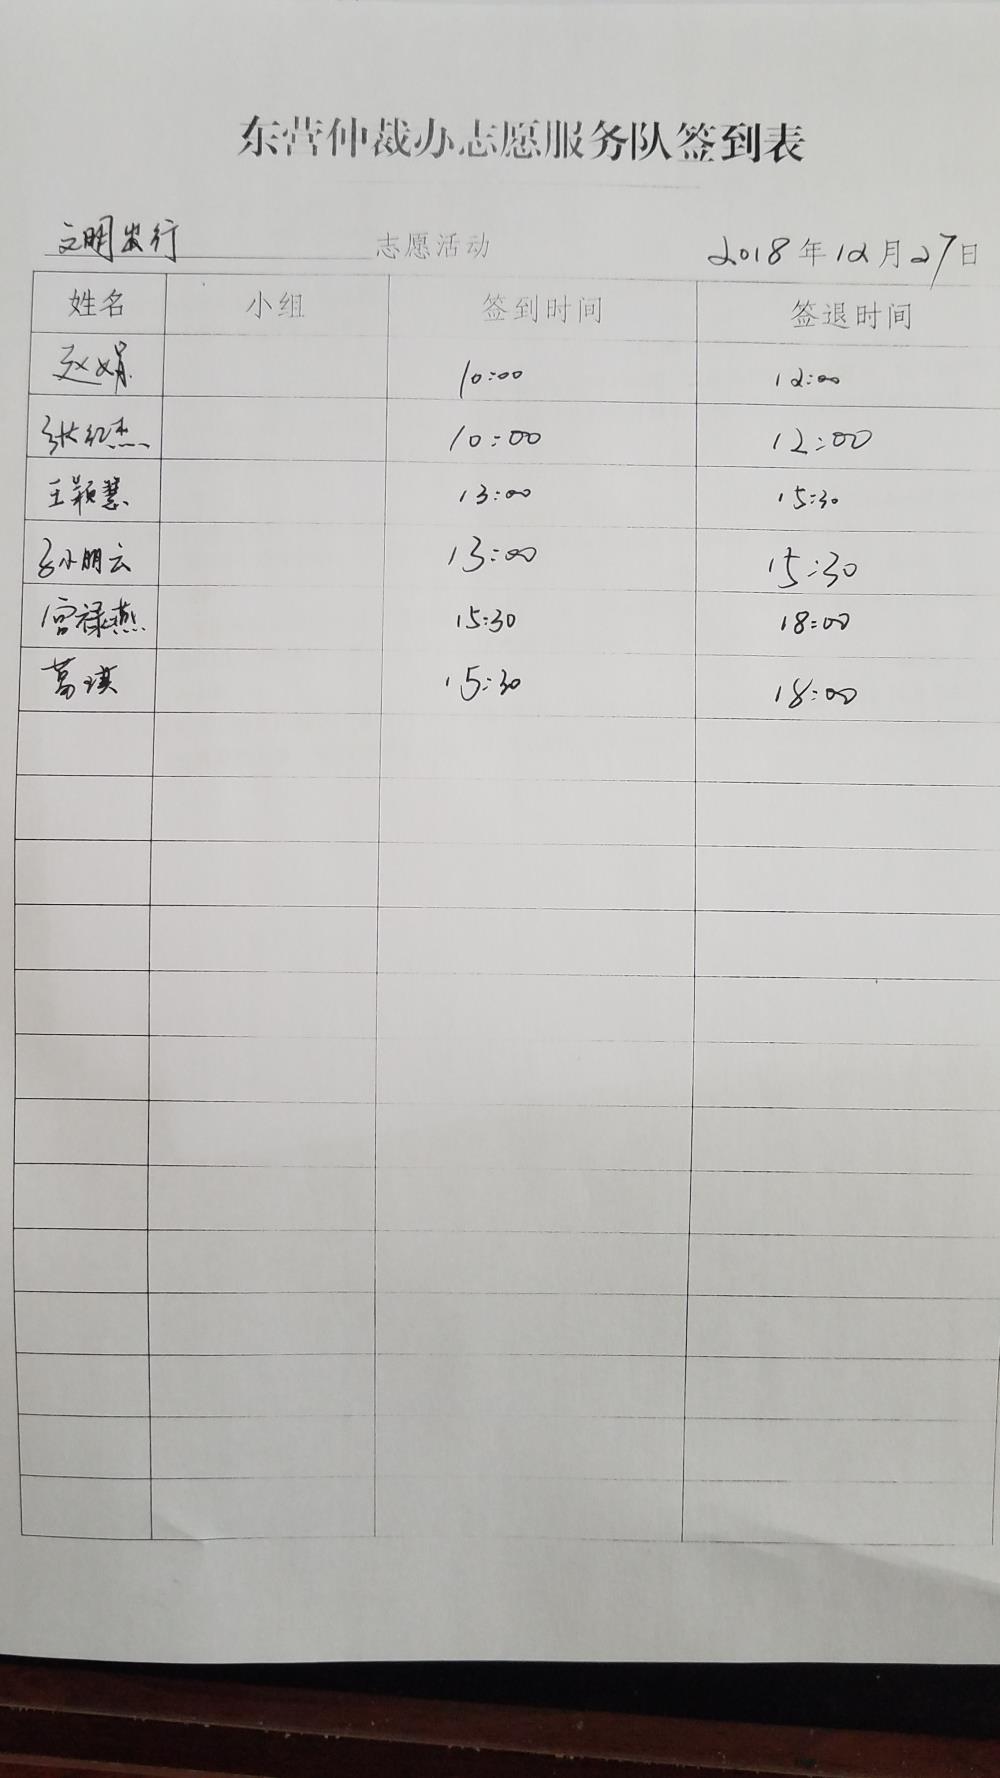 东营仲裁办志愿服务队签到表
文明出行 志愿活动 2018年12月27日
姓名 小组 签到时间 签退时间
赵娟 10:00 12:00
张红杰 10:00 12:00
王颖慧 13:00 15:30
孙朋云 13:00 15:30
宫禄燕 15:30 18:00
葛琪 15:30 18:00